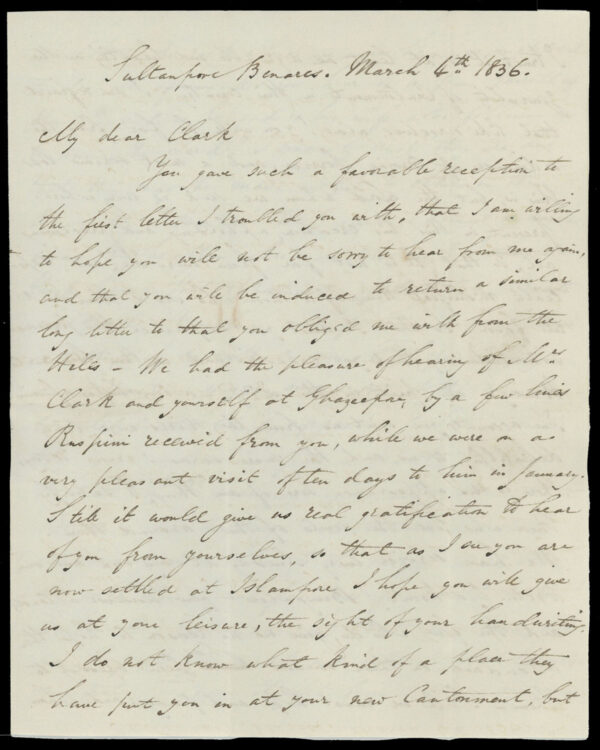 Sultanpore Benares. March 4th. 1836.
My dear Clark
You gave such a favorable reception to
the first letter I troubled you with, that I am willing
to hope you will not be sorry to hear from me again,
and that you will be induced to return a similar
long letter to that you obliged me with from the
Hills – We had the pleasure of hearing of Mrs
Clark and yourself at Ghazeepore, by a few lines
Ruspini received from you, while we were on a
very pleasant visit of ten days to him in January.
Still it would give us real gratification to hear
of you from yourselves, so that as I see you are
now settled at Islampore I hope you will give
us at your leisure, the sight of your handwriting.
I do not know what kind of a place they
have put you in at your new Cantonment, but